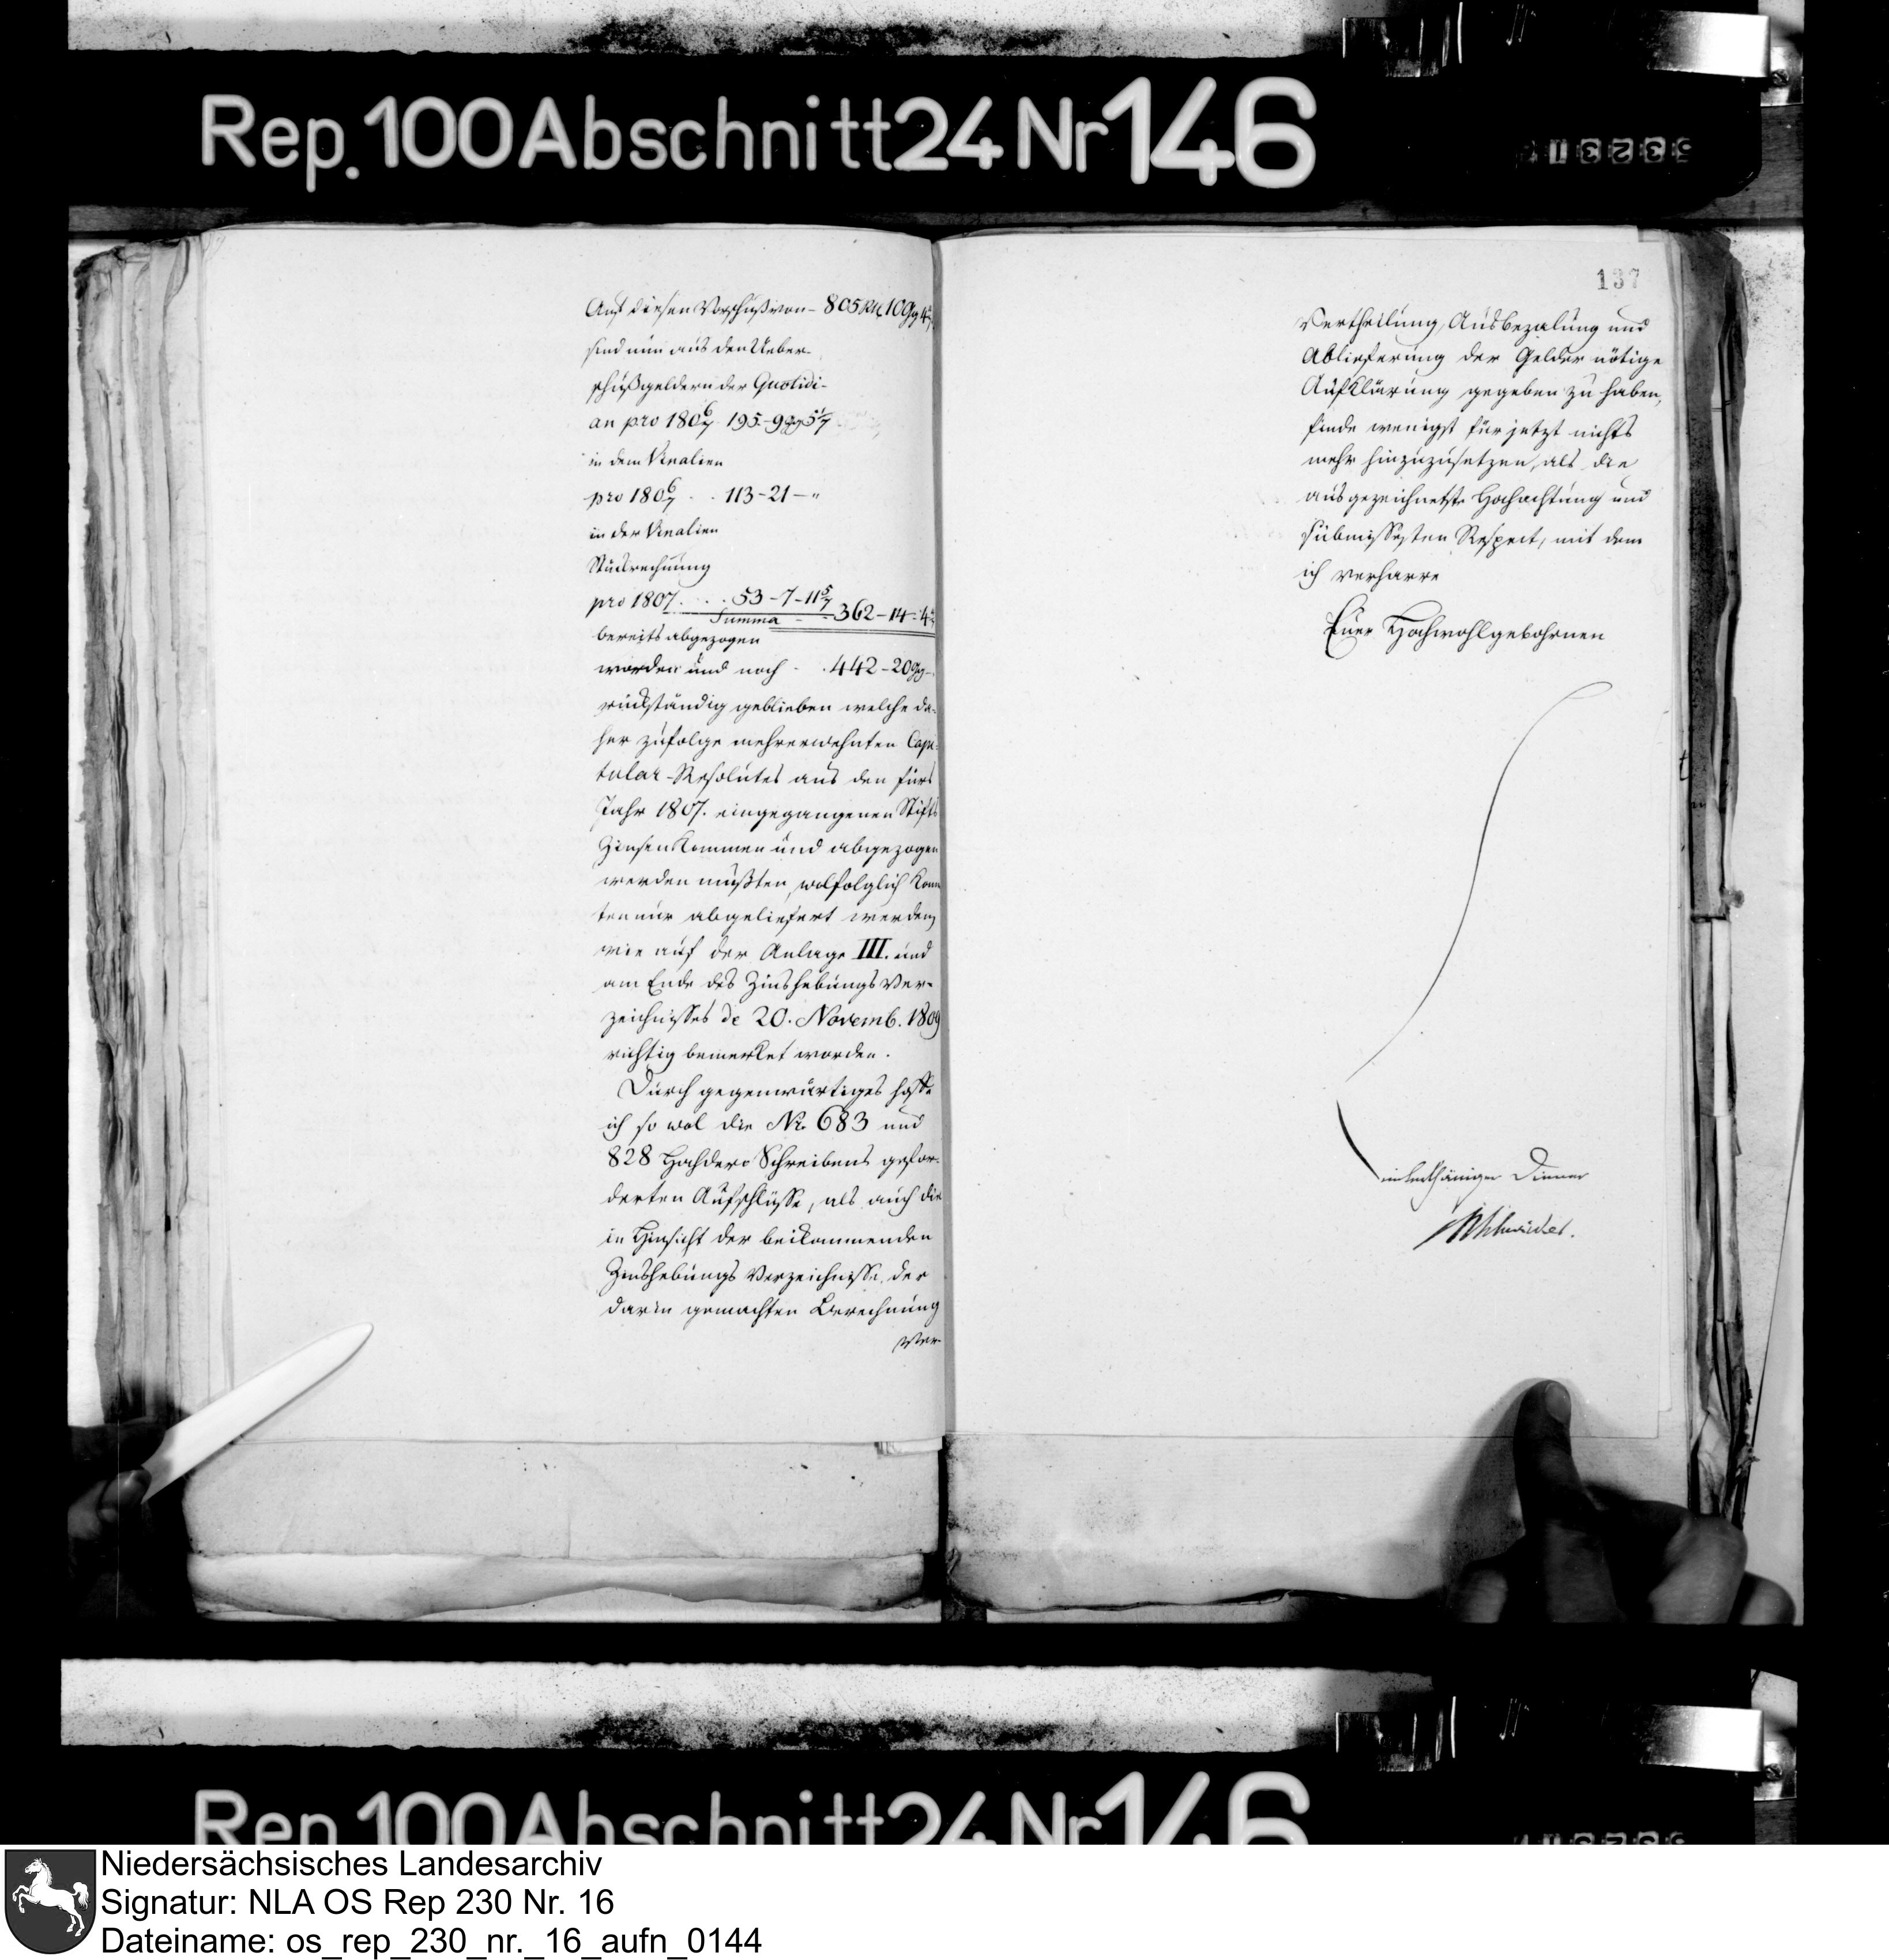 Rep. 100 Abschnitt 24 Nr 146
Auf diesen Vorschuß von - 805 Rtl 10 Gg 4
sind nun aus den Ueber-
schußgeldern der Quotidi-
an pro 180 6/7 195 - 9 gg 5 1/7
in dem Vinalien
pro 180 6/7 . . 113 - 21 - "
in der Vinalien
Stücksrechnung
pro 1807. . . . 53 - 7 - 11 5/7
Summa - - 362 - 14 - 4
bereits abgezogen
worden und noch - . 442 - 20 Gg -
rückständig geblieben welche da-
her zufolge mehrerwehnten Capi-
tular-Resolutes aus den fürs
Jahr 1807. eingegangenen Stifts
Zinsen kommen und abgezogen
werden mußten, folglich konn
ten nur abgeliefert werden,
wie auf der Anlage III. und
am Ende des Zinshebungs Ver-
zeichnisses de 20. Novemb. 1809
richtig bemerket worden.
Durch gegenwärtiges hoffe
ich so wol die Nr. 683 und
828 Hochdero Schreibens gefor-
derten Aufschlüsse, als auch die
in Hinsicht der beikommenden
Zinshebungs Verzeichnisse, der
darin gemachten Berechnung
Ver-
137
Vertheilung, Ausbezalung und
Ablieferung der Gelder nötige
Aufklärung gegeben zu haben,
finde wenigst für jetzt nichts
mehr hinzuzusetzen, als die
ausgezeichnetste Hochachtung und
submissesten Respect, mit dem
ich verharre
Euer Hochwohlgebohrnen
unterthäniger Diener
Rep. 100 Abschnitt 24 Nr 146
Niedersächsisches Landesarchiv
Signatur: NLA OS Rep 230 Nr. 16
Dateiname: os_rep_230_nr._16_aufn_0144